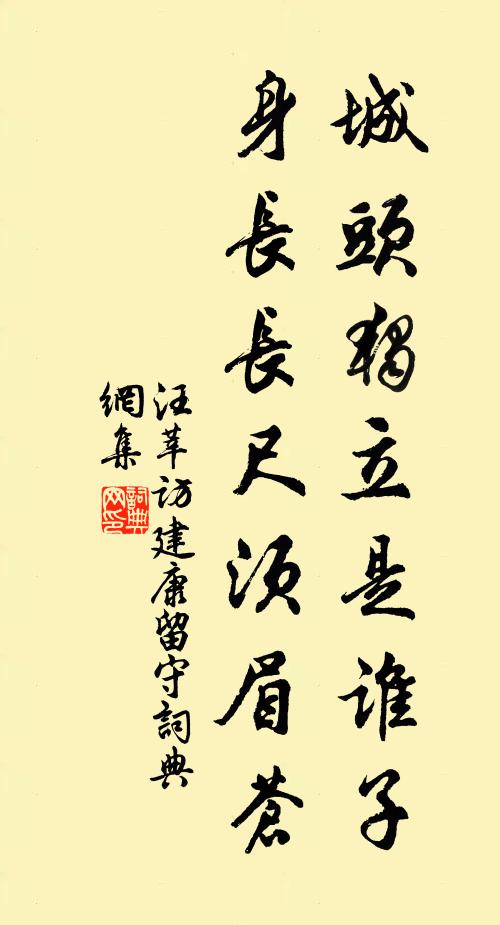 城頭獨立是誰子
身長長尺須眉蒼
汪莘訪建康留守詞典
網集
詞典
网印